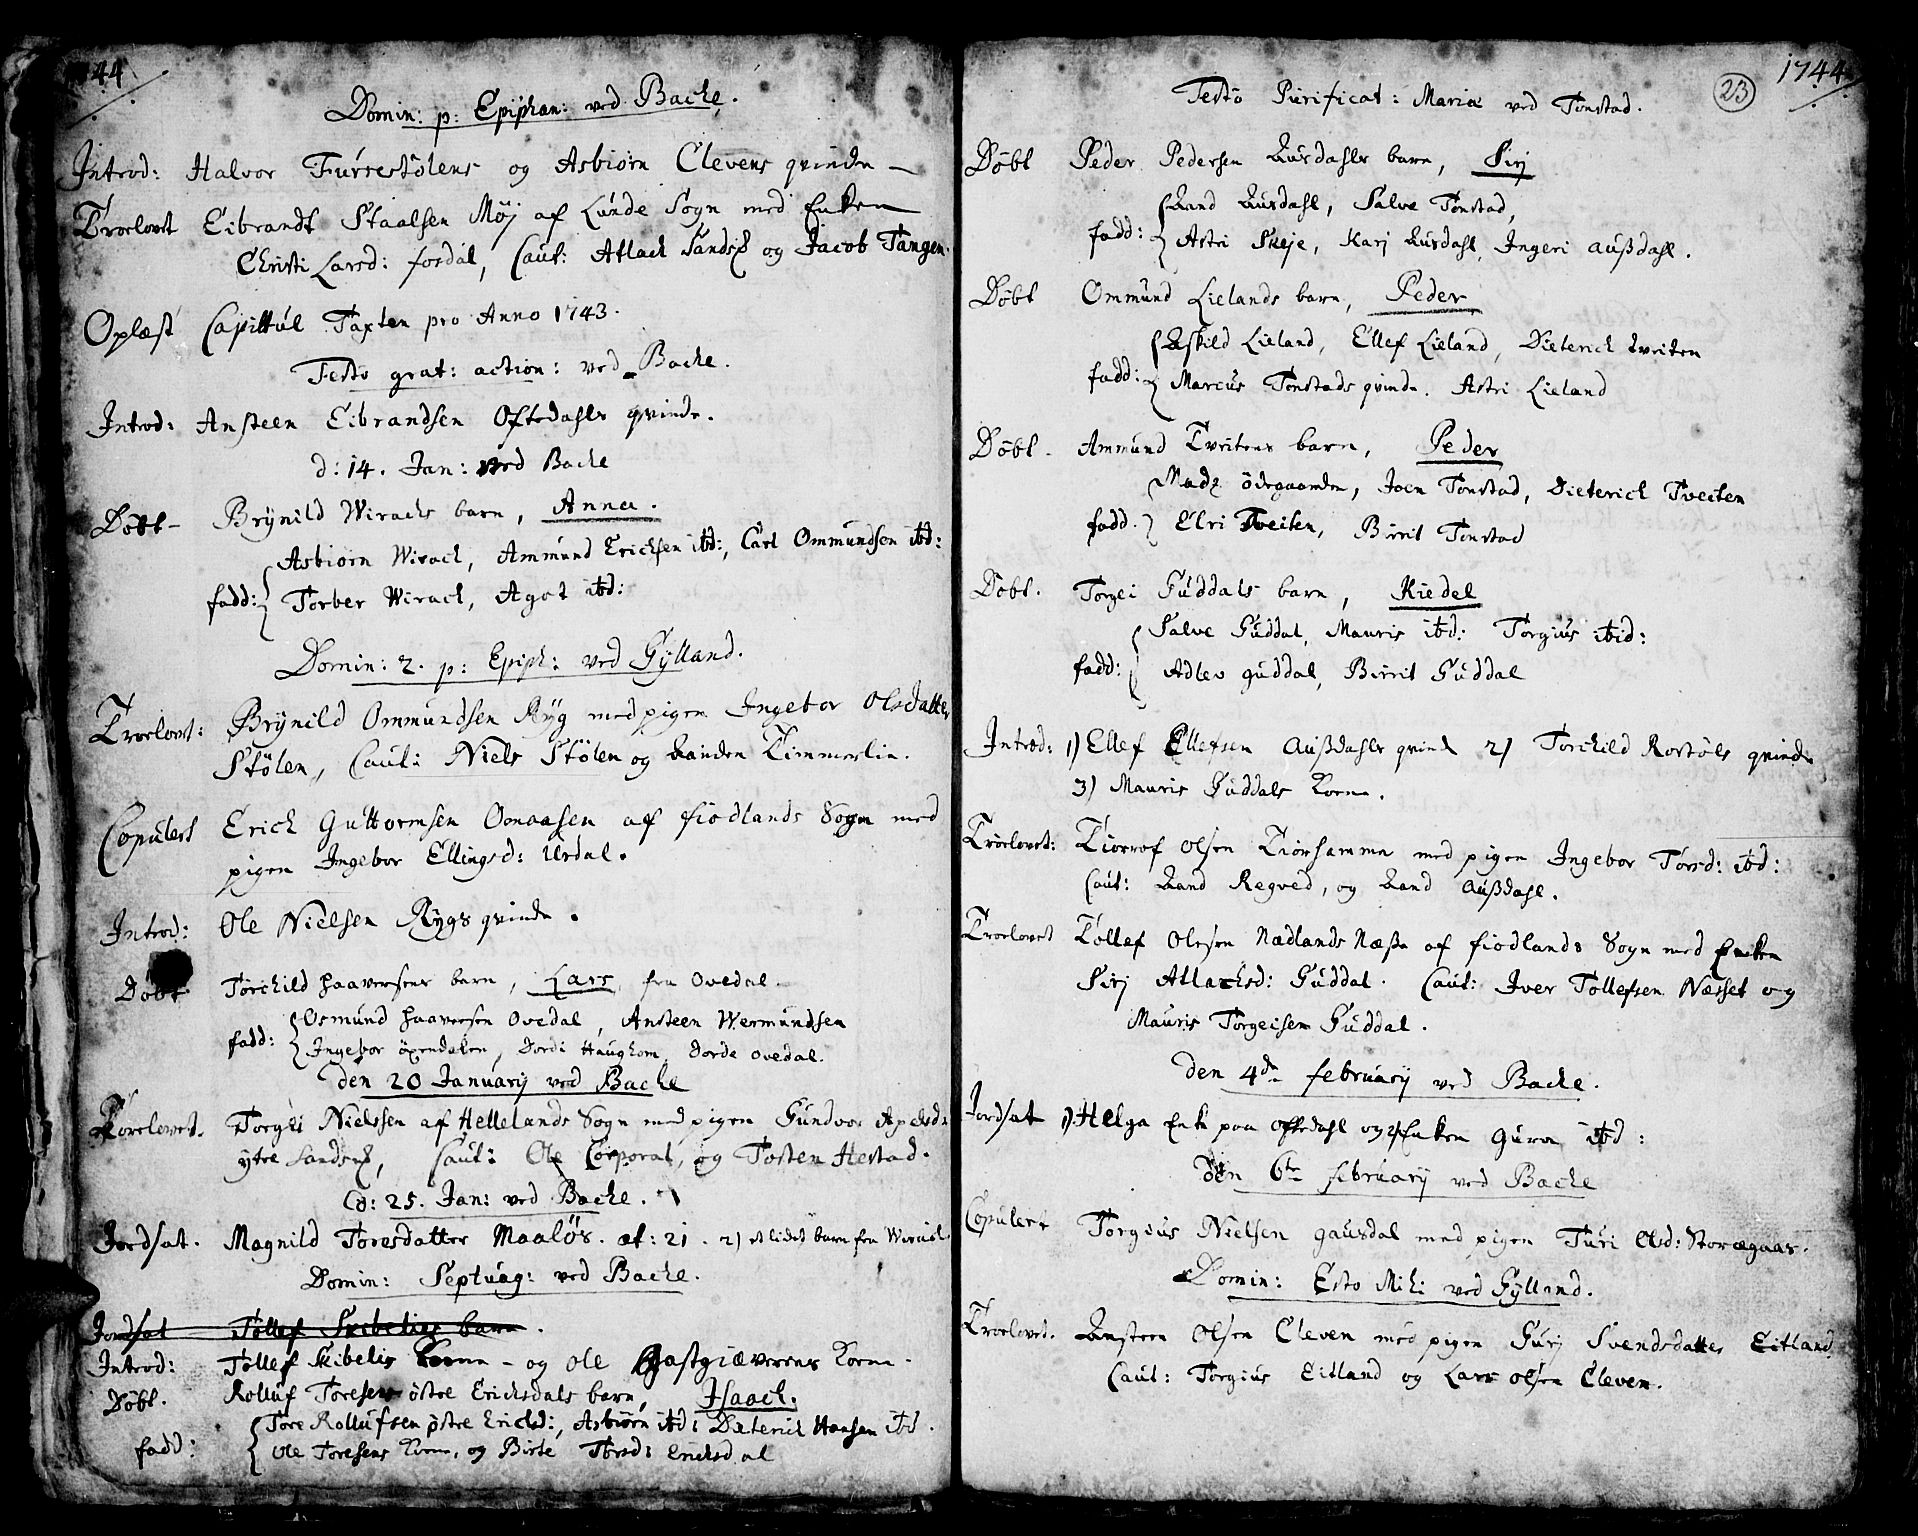 1744
Domin: p: Epiphan: ved Bache.
Introd: Halvor Furrestølens og Asbiørn Clevens qvinde
Troelovet Eibrandt Staalsen Møj af Lunde Sogn med Enken
Christi Larsd: fosdal, Caut: Atlack Sands og Jacob Tangen.
Oplæst Capittul Taxten pro Anno 1743.
Festo grat: action: ved Bache.
Introd: Ansteen Eibrandsen Oftedahls qvinde.
d: 14. Jan: ved Bache
Døbt Brÿnild Wirachs barn, Anna.
Asbiørn Wirach, Ammund Erichsen ibd:, Carl Ommundsen ibd:
fadd: Torber Wirach, Agot ibd:
Domin: 2. p: Epiph: ved Gÿlland.
Troelovet: Brÿnild Ommundsen Rÿg med pigen Ingebor Olsdatter
Stølen, Caut: Niels Stølen og Randen Timmerlin.
Copulert Erich Guttormsen Oonaasen af fiodlands Sogn med
pigen Ingebor Ellingsd: Urdal.
Introd: Ole Nielsen Rÿgs qvinde.
Døbt Torchild Haaversens barn, Lars fra Ovedal.
Osmund Haaversen Ovedal, Ansteen Wermundsen
fadd: Ingebor øxendalen, Dordi Haughom, Dorde Ovedal.
den 20 Januarij ved Bache
Troelovet. Torgei Nielssen af Hellelands Sogn med pigen Gundvor Apelsd:
ytre Sands, Caut: Ole Corporal, og Tosten Hestad.
d: 25. Jan: ved Bache.
Jordsat. Magnild Toresdatter Maaløs. æt: 21. 2) et lidet barn fra Wirach.
Domin: Septuag: ved Bache.
Jordsat Tollef Skibelies barn.
Introd: Tollef Skibelis Kone - og Ole Gastgiæverens Kone.
Døbt. Rolluf Toresens østre Erichsdals barn, Isaach.
Tore Rollufsen østre Erichsd:, Asbiørn ibd: Dieterich Hansen ibd.
fadd: Ole Toresens Kone, og Birte Torsd: Erichsdal
1744
23
Festo Purificat: Mariæ ved Tonstad.
Døbt Peder Pedersen Aursdahls barn, Sirj
Rand Aursdahl, Salve Tonstad,
fadd: Astri Skeje, Karj Aursdahl, Ingeri Aussdahl.
Døbt Ommund Lielands barn, Peder
Eskild Lieland, Ellef Lieland, Dieterich Tveiten
fadd: Marcus Tonstads qvinde. Astri Lieland
Døbt. Ammund Tveitens barn, Peder
Mads ødegaarden, Joen Tonstad, Dieterich Tveiten
fadd. Elri Tveiten, Birrit Tonstad
Døbt. Torgei Guddals barn, Kiedel
Salve Guddal, Mauris ibd: Torgius ibid:
fadd: Adlev guddal, Birrit Guddal
Introd: 1) Ellef Ellefsen Aussdahls qvinde 2) Torchild Rostøls qvinde
3) Mauris Guddals Kone.
Troelovet: Tiorrof Olsen Tiorhamme med pigen Ingebor Torsd: ibd:
Caut: Rand Regved, og Rand Aussdahl.
Troelovet Tollef Olesen Nædlands Næsse af fiodlands Sogn med Encken
Sirj Atlachsd: Guddal. Caut: Iver Tollefsen Næsset og
Mauris Torgeisen Guddal.
den 4de februarij ved Bache.
Jordsat 1) Helga Enke paa Oftedahl og 2) Enken Guroe ibd:
den 6te februarij ved Bache
Copulert Torgius Nielsen Gausdal med pigen Turi Olsd: Storægaar.
Domin: Esto Mihi ved Gÿlland.
Troelovet. Ansteen Olsen Cleven med pigen Gurj Svendsdatter Eitland,
Caut: Torgius Eitland og Lars Olsen Cleven.